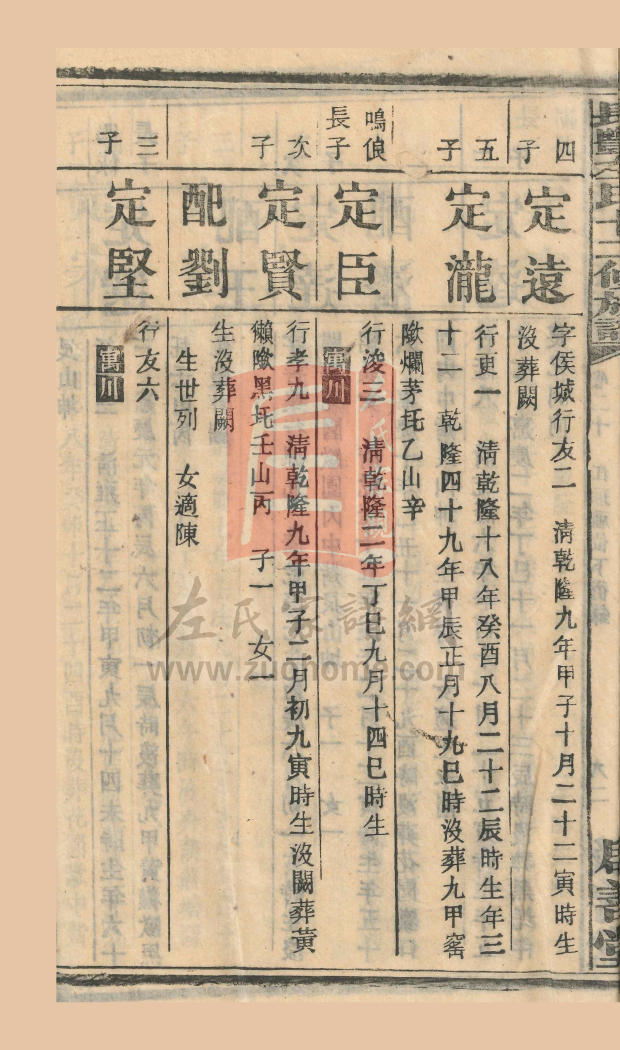 四子
定遠
字侯城行友二 清乾隆九年甲子十月二十二寅時生
沒葬闕
五子
定瀧
行更一 清乾隆十八年癸酉八月二十二辰時生年三
十二 乾隆四十九年甲辰正月十九巳時沒葬九甲窰
歟爛茅圫乙山辛
鳴偵長子
定臣
行浚三 清乾隆二年丁巳九月十四巳時生
寓川
次子
定賢
行孝九 清乾隆九年甲子二月初九寅時生沒闕葬黃
獺歟黑圫壬山丙 子一 女一
配劉
生沒葬闕
生世列 女適陳
三子
定堅
行友六
寓川
左氏家譜網
www.zuohome.com